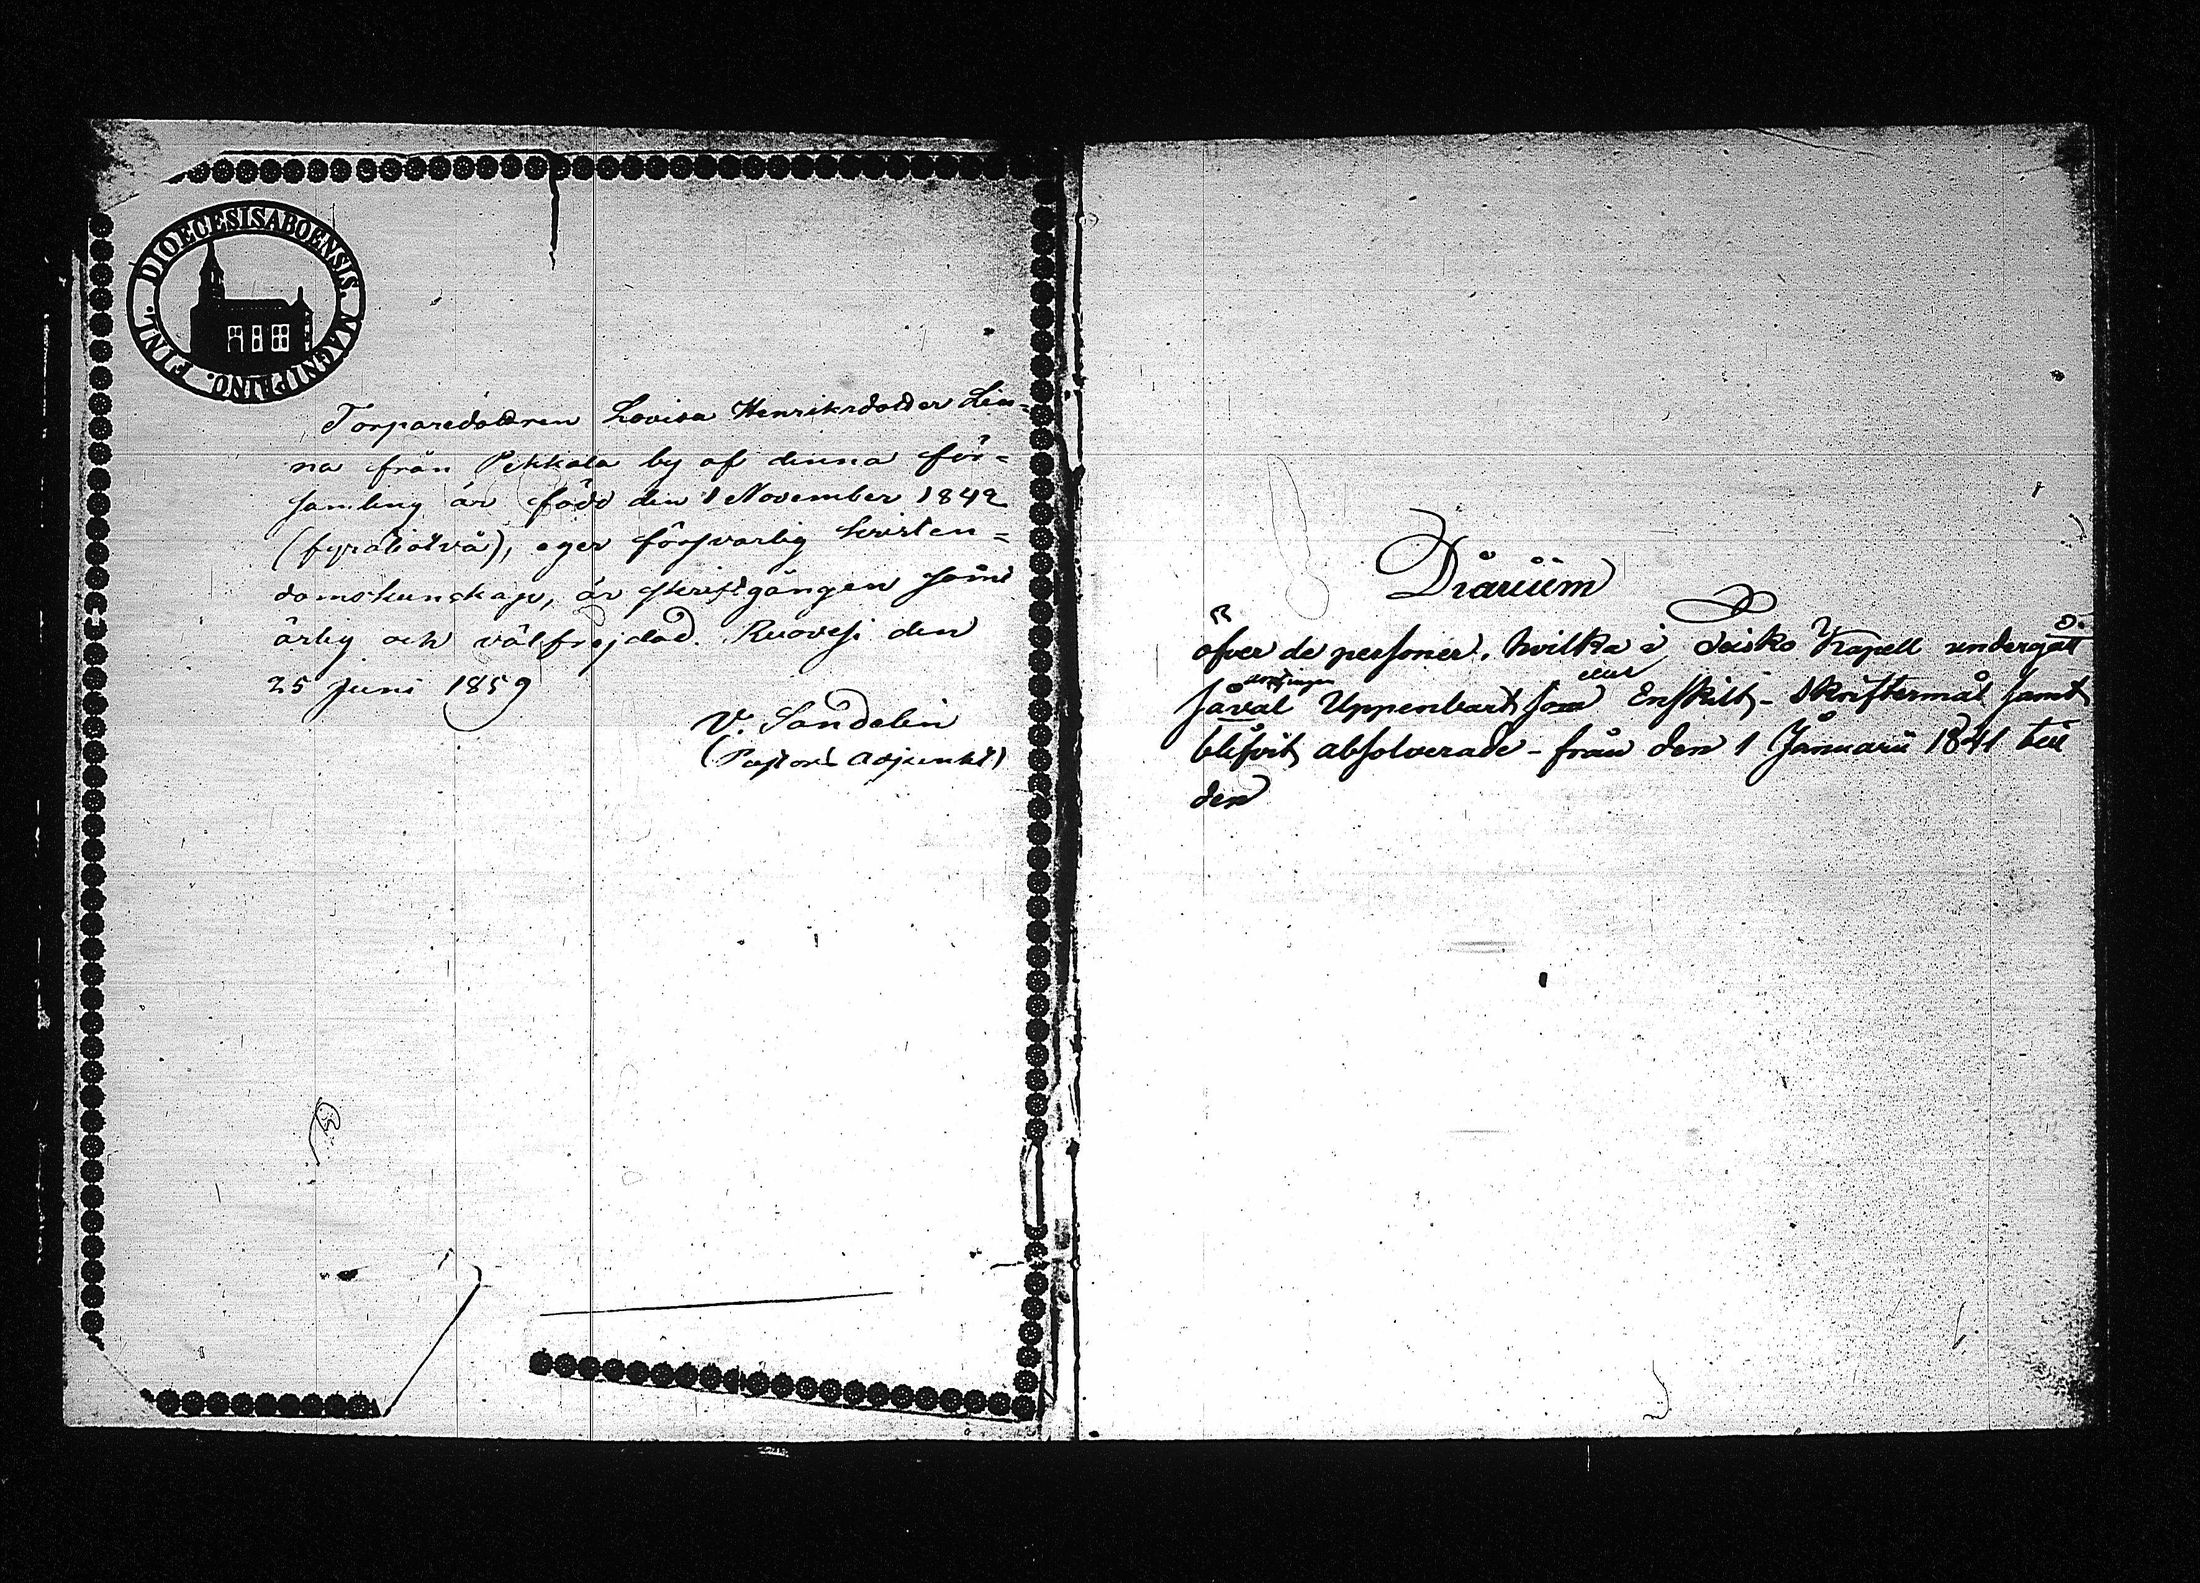 DIOECESIS ABOENSIS. MAGNI PRINC. FINL.
Torparedottren Lovisa Henriksdotter Lin=
na från Pekkala by af denna för=
samling är född den 1 November 1842
(fyratiotvå), eger försvarlig kristen=
domskunskap, är skriftgången samt
ärlig och välfrejdad. Ruovesi den
25 Juni 1859
V. Sandelin
(Pastors adjunkt)
Diarium
öfver de personer, hvilka i Teisko Kapell undergåt
såväl Uppenbart som eller Enskilt skriftermål samt
blifvit absolverade - från den 1 Januarii 1841 till
den